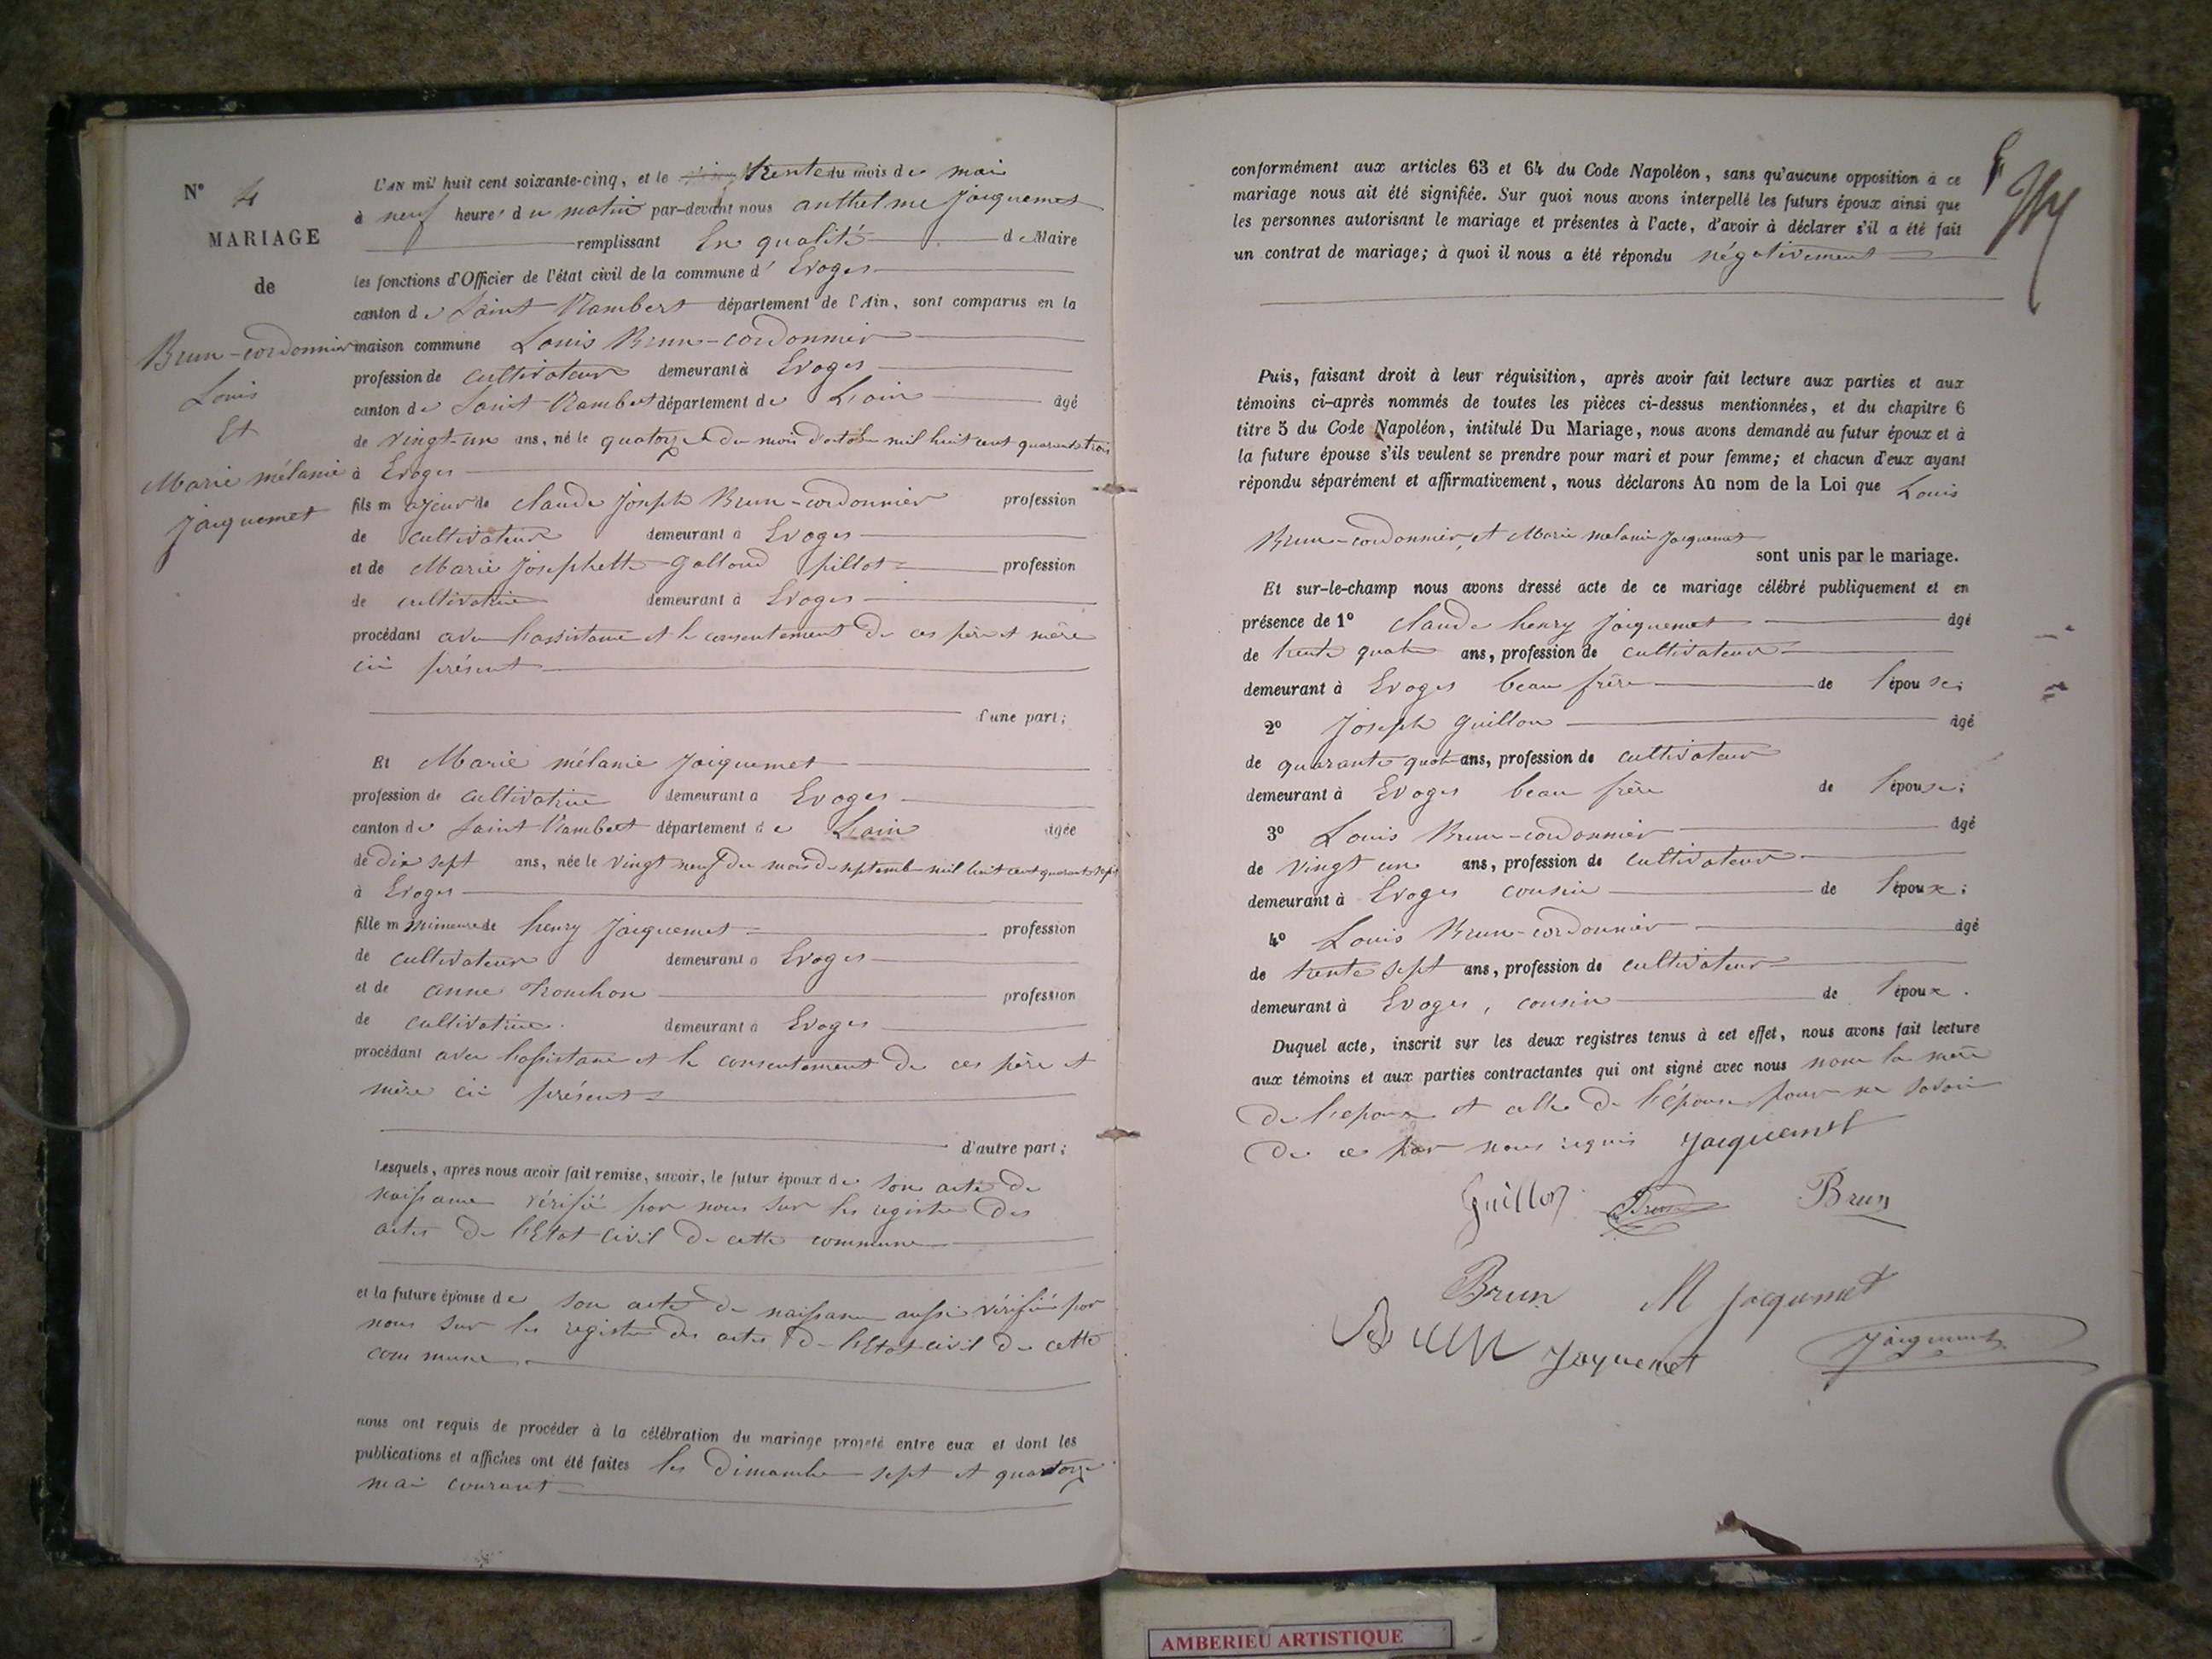 N° 4
MARIAGE
de
Brun-cordonnier
Louis
Et
Marie mélanie
Jacquemet
L'AN mil huit cent soixante-cinq, et le trente du mois de mai
à neuf heures du matin par-devant nous anthelme Jacquemet
remplissant En qualité de Maire
les fonctions d'Officier de l'état civil de la commune d' Evoges
canton de Saint Rambert département de l'Ain, sont comparus en la
maison commune Louis Brun-cordonnier
profession de cultivateur demeurant à Evoges
canton de Saint Rambert département de L'ain âgé
de vingt-un ans, né le quatorze du mois d'octobre mil huit cent quarante trois
à Evoges
fils majeur de claude Joseph Brun-cordonnier profession
de cultivateur demeurant à Evoges
et de Marie Josephette Galland pillot profession
de cultivatrice demeurant à Evoges
procédant avec l'assistance et le consentement de ces père et mère
ici présent
d'une part;
Et Marie mélanie Jacquemet
profession de cultivatrice demeurant à Evoges
canton de Saint Rambert département de L'ain âgée
de dix sept ans, née le vingt neuf du mois de septembre mil huit cent quarante sept
à Evoges
fille mineure de henry Jacquemet profession
de cultivateur demeurant à Evoges
et de anne profession
de cultivatrice demeurant à Evoges
procédant avec l'assistance et le consentement de ces père et
mère ici présent
d'autre part;
Lesquels, après nous avoir fait remise, savoir, le futur époux de son acte de
naissance vérifié par nous sur les registre des
actes de l'Etat civil de cette commune
et la future épouse de son acte de naissance aussi vérifié par
nous sur les registre des actes de l'Etat civil de cette
commune
nous ont requis de procéder à la célébration du mariage projeté entre eux et dont les
publications et affiches ont été faites les dimanche sept et quatorze
mai courant
conformément aux articles 63 et 64 du Code Napoléon, sans qu'aucune opposition à ce
mariage nous ait été signifiée. Sur quoi nous avons interpellé les futurs époux ainsi que
les personnes autorisant le mariage et présentes à l'acte, d'avoir à déclarer s'il a été fait
un contrat de mariage; à quoi il nous a été répondu négativement
Puis, faisant droit à leur réquisition, après avoir fait lecture aux parties et aux
témoins ci-après nommés de toutes les pièces ci-dessus mentionnées, et du chapitre 6
titre 5 du Code Napoléon, intitulé Du Mariage, nous avons demandé au futur époux et à
la future épouse s'ils veulent se prendre pour mari et pour femme; et chacun d'eux ayant
répondu séparément et affirmativement, nous déclarons Au nom de la Loi que Louis
Brun-cordonnier, et Marie melanie Jacquemet
sont unis par le mariage.
Et sur-le-champ nous avons dressé acte de ce mariage célébré publiquement et en
présence de 1° claude henry Jacquemet âgé
de trente quatre ans, profession de cultivateur
demeurant à Evoges beau frère de l'épouse;
2° Joseph Guillon âgé
de quarante quatre ans, profession de cultivateur
demeurant à Evoges beau frère de l'épouse;
3° Louis Brun-cordonnier âgé
de vingt un ans, profession de cultivateur
demeurant à Evoges cousin de l'époux;
4° Louis Brun-cordonnier âgé
de trente sept ans, profession de cultivateur
demeurant à Evoges, cousin de l'époux.
Duquel acte, inscrit sur les deux registres tenus à cet effet, nous avons fait lecture
aux témoins et aux parties contractantes qui ont signé avec nous non la mère
de l'époux et celle de l'épouse pour ne savoir
de ce par nous requis Jacquemet
Guillon Brun Brun
Brun M Jacquemet
Brun Jaquemet Jacquemet
AMBERIEU ARTISTIQUE